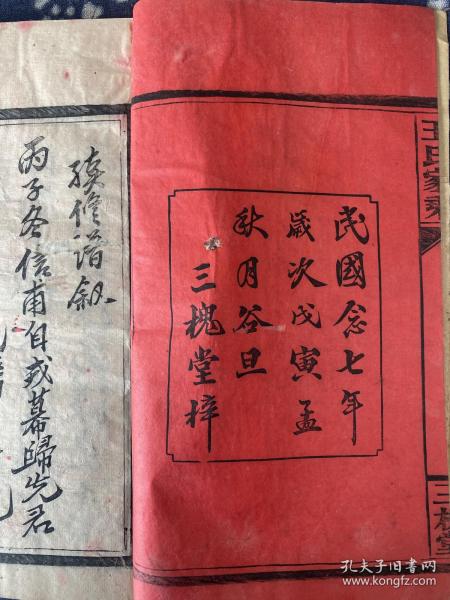 民國念七年
歲次戊寅孟
秋月谷旦
三槐堂梓
王氏家乘
三槐堂
續修譜敘
丙子冬信甫自戎幕歸先君
孔夫子旧书网
www.kongfz.com